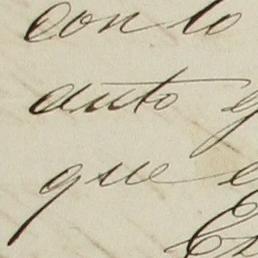 con lo
auto
que